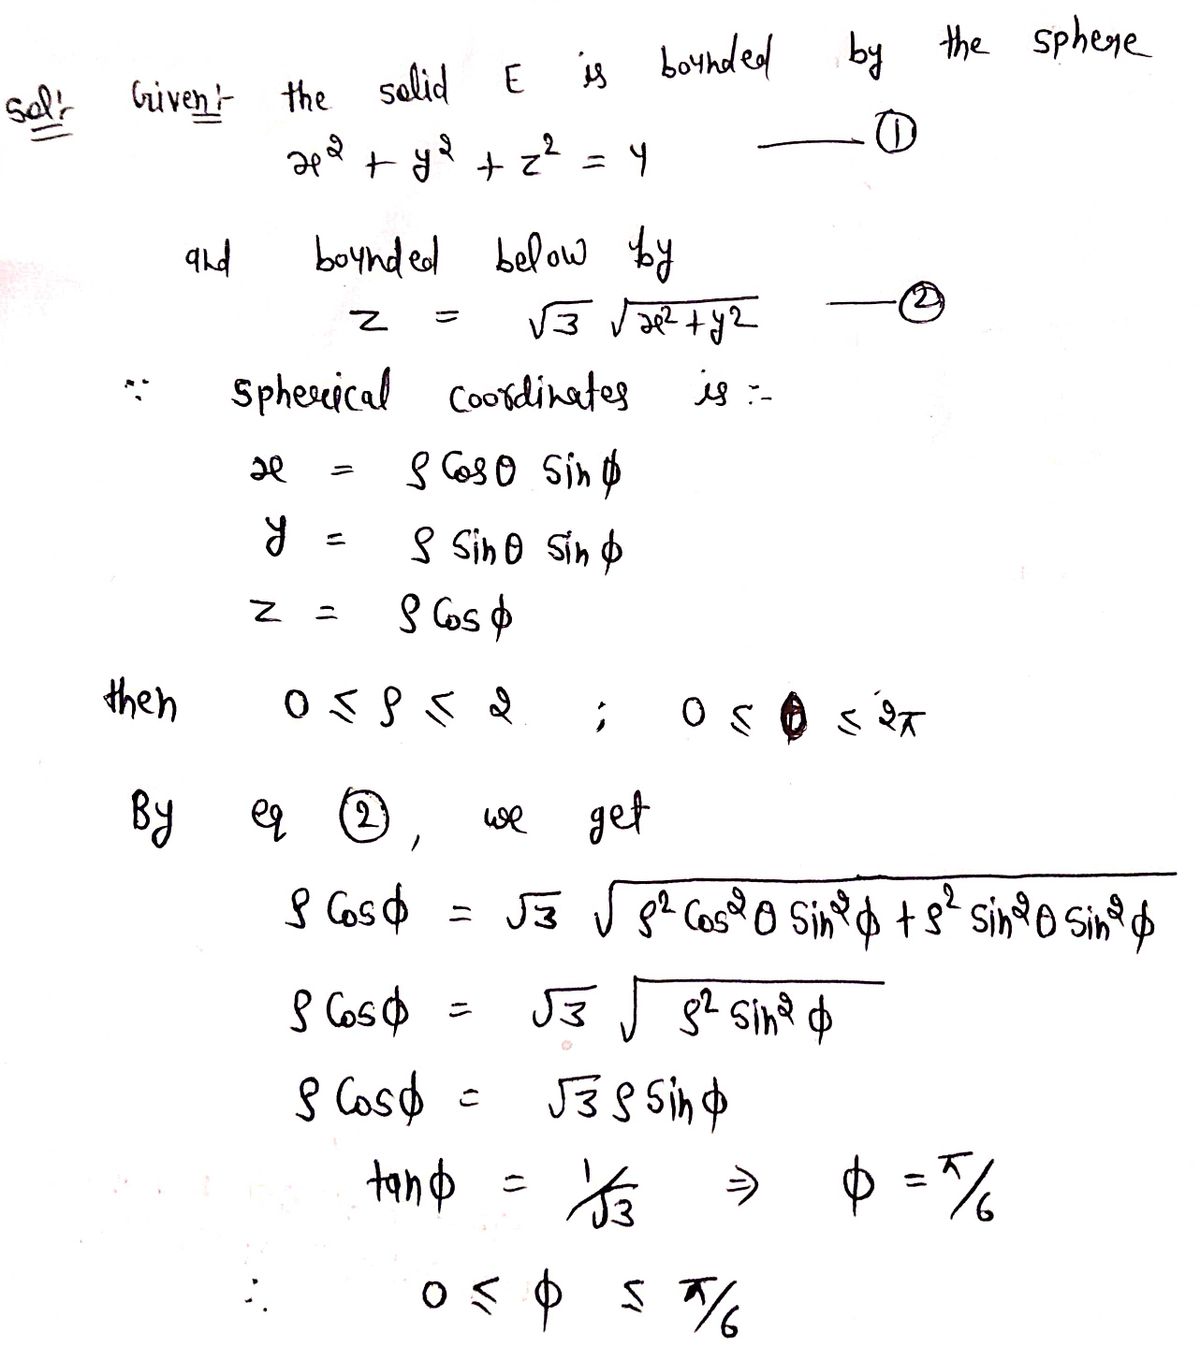 Sol:- Given:- the solid E is bounded by the sphere
x² + y² + z² = 4 —— ①
and bounded below by
z = √3 √(x²+y²) —— ②
∵ Spherical coordinates is :-
x = ρ Cosθ Sinϕ
y = ρ Sinθ Sinϕ
z = ρ Cosϕ
then 0 ≤ ρ ≤ 2 ; 0 ≤ θ ≤ 2π
By eq ②, we get
ρ Cosϕ = √3 √(ρ² Cos²θ Sin²ϕ + ρ² Sin²θ Sin²ϕ)
ρ Cosϕ = √3 √(ρ² Sin²ϕ)
ρ Cosϕ = √3 ρ Sinϕ
tanϕ = 1/√3 ⇒ ϕ = π/6
∴ 0 ≤ ϕ ≤ π/6